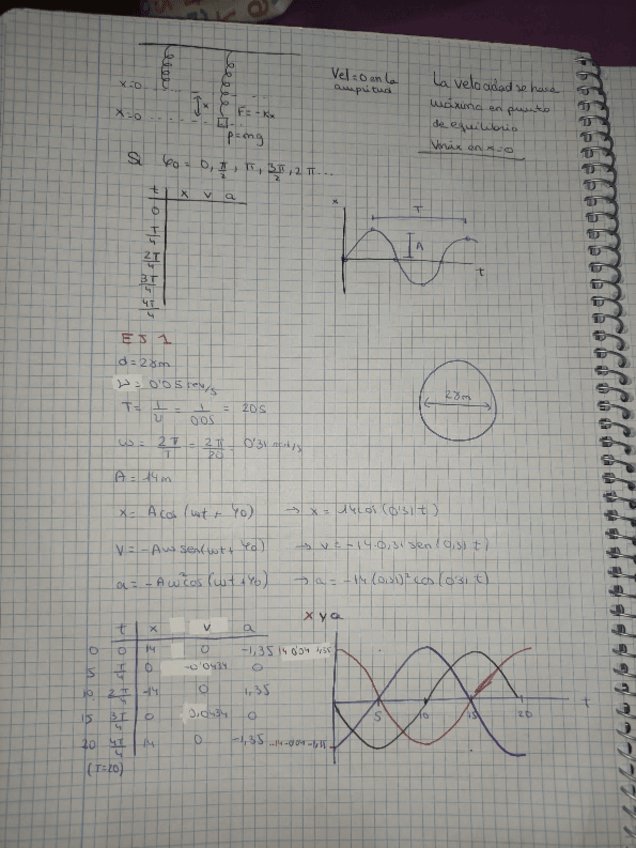 x=0
x=0
x
F=-Kx
p=mg
Vel=0 en la
amplitud
La velocidad se hace
máxima en punto
de equilibrio
Vmáx en x=0
Si φ0 = 0, π/2, π, 3π/2, 2π...
t x v a
0
T/4
2T/4
3T/4
4T/4
x
T
A
t
EJ 1
d=28m
ν= 0'05 rev/s
28m
T= 1/ν = 1/0'05 = 20s
ω= 2π/T = 2π/20 = 0'31 rad/s
A = 14m
x= A cos(ωt + φ0) → x = 14cos(0,31 t)
V= -Aω sen(ωt + φ0) → v = -14·0,31 sen(0,31 t)
a= -Aω²cos(ωt+φ0) → a= -14(0,31)² cos(0'31 t)
t x v a
0 0 14 0 -1,35
5 T/4 0 -0,0434 0
10 2T/4 -14 0 1,35
15 3T/4 0 0,0434 0
20 4T/4 14 0 -1,35
(T=20)
x v a
14 0'04 1,35
-14 -0'04 -1,35
5 10 15 20
t